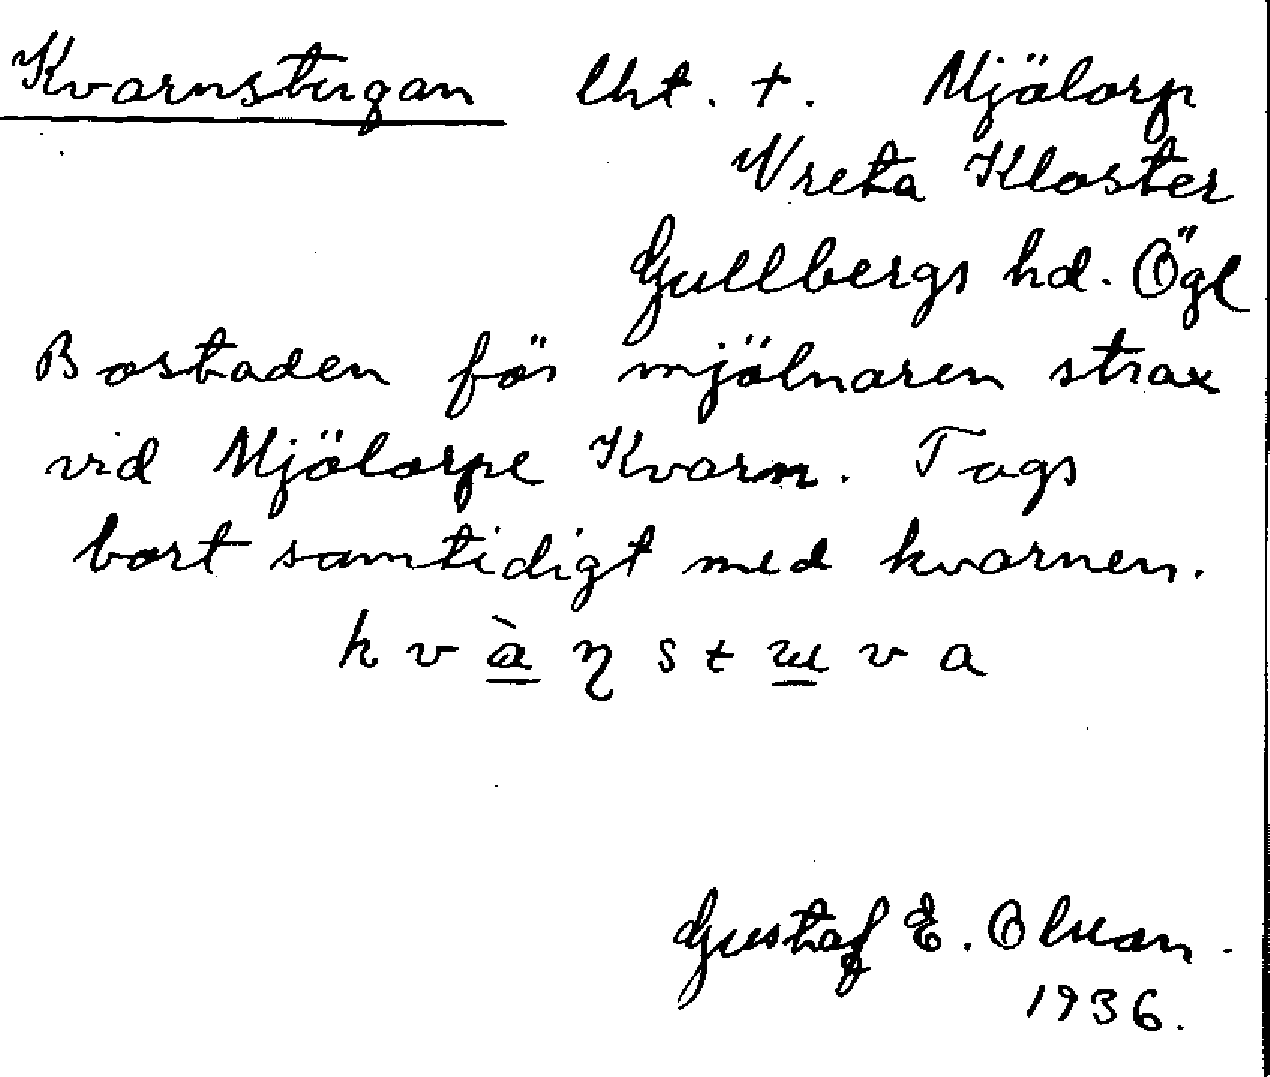 Kvarnstugan lht. †. Mjölorp
Vreta Kloster
Gullbergs hd. Ögl
Bostaden för mjölnaren strax
vid Mjölorpe Kvarn. Togs
bort samtidigt med kvarnen.
Gustaf E. Olson.
1936.